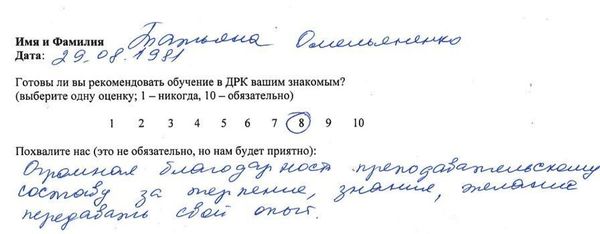 Имя и Фамилия Татьяна Омельяненко
Дата: 29.08.1981
Готовы ли вы рекомендовать обучение в ДРК вашим знакомым?
(выберите одну оценку; 1 – никогда, 10 – обязательно)
1 2 3 4 5 6 7 8 9 10
Похвалите нас (это не обязательно, но нам будет приятно):
Огромная благодарность преподавательскому
составу за терпение, знания, желание
передавать свой опыт.